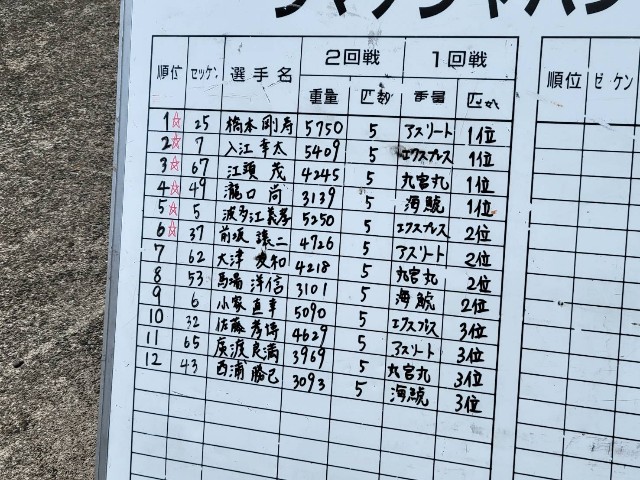 ジャパン
順位 ゼッケン 選手名 2回戦 1回戦 順位 ゼッケン
重量 匹数 重量 匹数
1☆ 25 橋本剛寿 5750 5 アスリート 1位
2☆ 7 入江幸太 5409 5 エクスプレス 1位
3☆ 67 江頭 茂 4245 5 丸宮丸 1位
4☆ 49 瀧口 尚 3139 5 海鯱 1位
5☆ 5 波多江義孝 5250 5 エクスプレス 2位
6☆ 37 前坂 譲二 4726 5 アスリート 2位
7 62 大津 和 4218 5 丸宮丸 2位
8 53 馬場 洋信 3101 5 海鯱 2位
9 6 小家直幸 5090 5 エクスプレス 3位
10 32 佐藤 4629 5 アスリート 3位
11 65 廣渡良満 3969 5 丸宮丸 3位
12 43 西浦勝己 3093 5 海鯱 3位